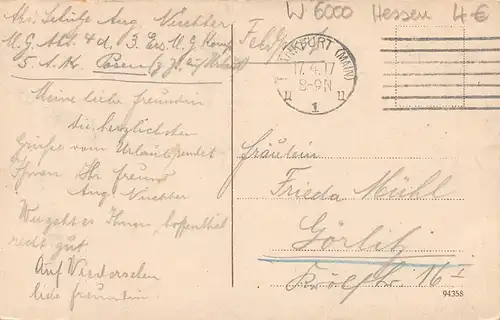 Abs. Schütze Aug. Nuchter
M. G. Abt. 4 d. 3. Ers. M. G. Komp
5. A. K. Posen (z. Z. auf Urlaub)
Feldp
W 6000 Hessen 4 €
FRANKFURT (MAIN)
17.4.17
8-9N
1
Meine liebe freundin
die herzlichsten
Grüße vom Urlaub sendet
Ihnen Ihr freund
Aug Nuchter
Wie geht es Ihnen hoffentlich
recht gut
Auf Wiedersehen
liebe freundin
Fräulein
Frieda Mühl
Görlitz
16 I
94358